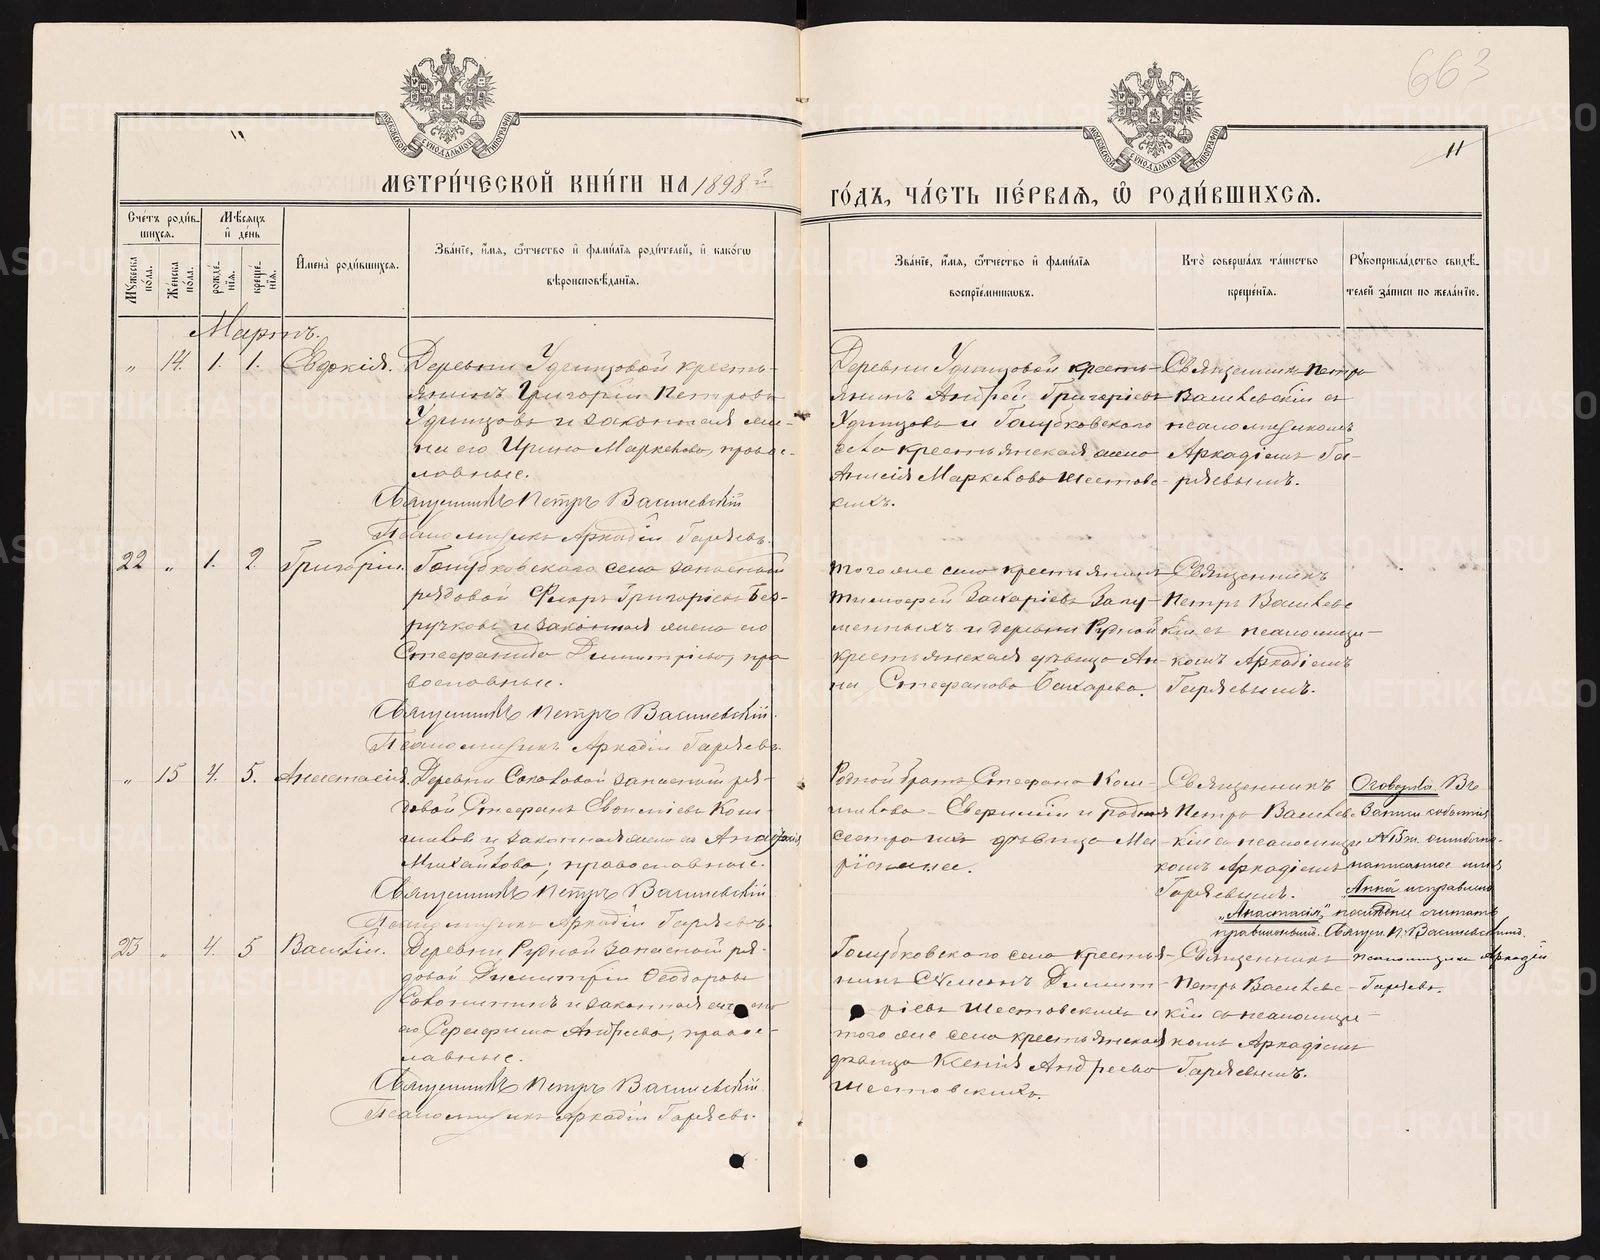 663
11
МЕТРИ́ЧЕСКОЙ КНИ́ГИ НА 1898 й
ГО́ДЪ, ЧА́СТЬ ПЕ́РВАѦ, Ѡ РОДИ́ВШИХСѦ.
Сче́тъ роди́в-
шихсѧ.
Мѣсѧцъ
и де́нь
Мꙋ́жеска по́ла.
Же́нска по́ла.
рожде́-
нїѧ.
креще́-
нїѧ.
И҆мена̀ роди́вшихсѧ.
Зва́нїе, и҆́мѧ, ѻ҆́тчество и҆ фами́лїѧ роди́телей, и҆ како́гѡ
вѣроисповѣ́данїѧ.
Зва́нїе, и҆́мѧ, ѻ҆́тчество и҆ фами́лїѧ
воспрїе́мникѡвъ.
Кто̀ соверша́лъ та́инство
креще́нїѧ.
Рꙋкоприкла́дство свидѣ́-
телей за́писи по жела́нїю.
Мартъ.
„ 14. 1. 1. Евдокія.
Деревни Удинцовой кресть-
янинъ Григорій Петровъ
Удинцовъ и законная же-
на его Ирина Маркелова, право-
славные.
Священникъ Петръ Василевскій
Псаломщикъ Аркадій Гаряевъ.
Деревни Удинцовой кресть-
янинъ Андрей Григорьевъ
Удинцовъ и Голубковского
села крестьянская жена
Анисія Маркелова Шестовс-
кихъ.
Священникъ Петръ
Василевскій съ
псаломщикомъ
Аркадіемъ Га-
ряевымъ.
22 „ 1. 2 Григорій.
Голубковского села запасный
рядовой Флоръ Григорьевъ Без-
ручковъ и законная жена его
Стефанида Димитріева, пра-
вославные.
Священникъ Петръ Василевскій.
Псаломщикъ Аркадій Гаряевъ.
того же села крестьянинъ
Тимофей Захаріевъ
и деревни Рудной
крестьянская дѣвица Ан-
на Стефанова Бахарева.
Священникъ
Петръ Василевс-
кій съ псаломщи-
комъ Аркадіемъ
Гаряевымъ.
„ 15 4. 5. Анастасія.
Деревни Соколовой запасный ря-
довой Стефанъ
и законная жена его Анастасія
Михайлова; православные.
Священникъ Петръ Василевскій
Псаломщикъ Аркадій Гаряевъ.
Родной братъ Стефана
и родная
сестра ихъ дѣвица Ма-
ріанна.
Священникъ
Петръ Василевс-
кій съ псаломщи-
комъ Аркадіемъ
Гаряевымъ.
Оговорка. Въ
записи событія
№ 15 ж. ошибочно
написанное имя
„Анна“ исправлено
„Анастасія,“ послѣднее считать
правильнымъ. Священ. П. Василевскій.
Псаломщикъ Аркадій
Гаряевъ.
23 „ 4. 5 Василій.
Деревни Рудной запасный ря-
довой Димитрій Ѳеодоровъ
и законная жена
его Серафима Андреева, право-
славные.
Священникъ Петръ Василевскій.
Псаломщикъ Аркадій Гаряевъ.
Голубковского села крестья-
нинъ Симеонъ Димит-
ріевъ Шестовскихъ и
того же села крестьянская
дѣвица Ксенія Андреева
Шестовскихъ.
Священникъ
Петръ Василевс-
кій съ псаломщи-
комъ Аркадіемъ
Гаряевымъ.